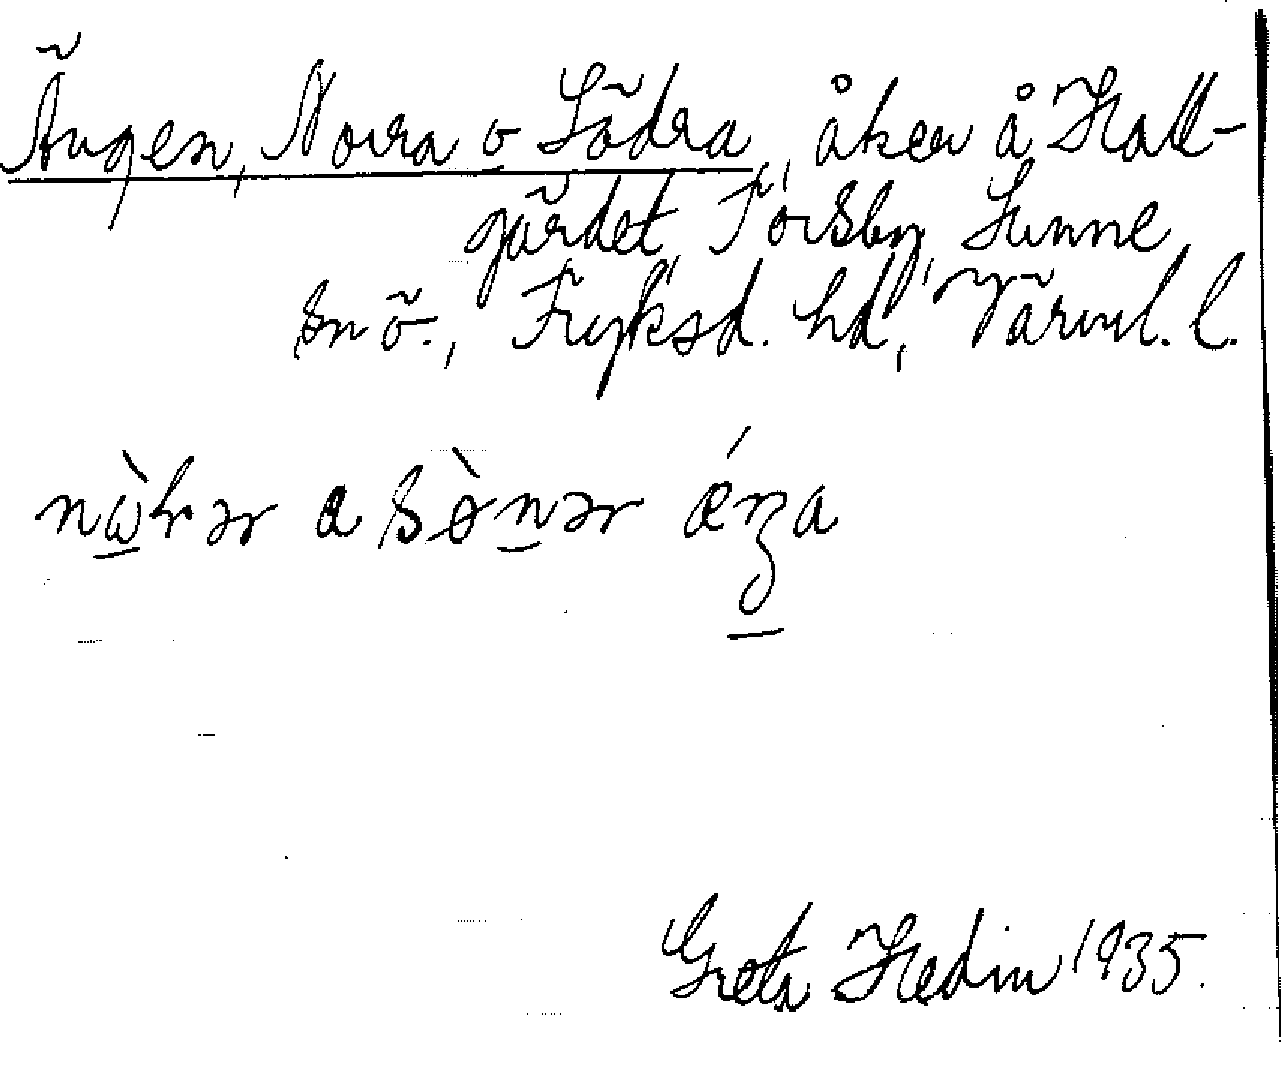 Ängen, Norra o Södra, åker å Hall-
gärdet, Torsby, Sunne
sn ö., Fryksd. hd, Värml. l.
a
Greta Hedin 1935.